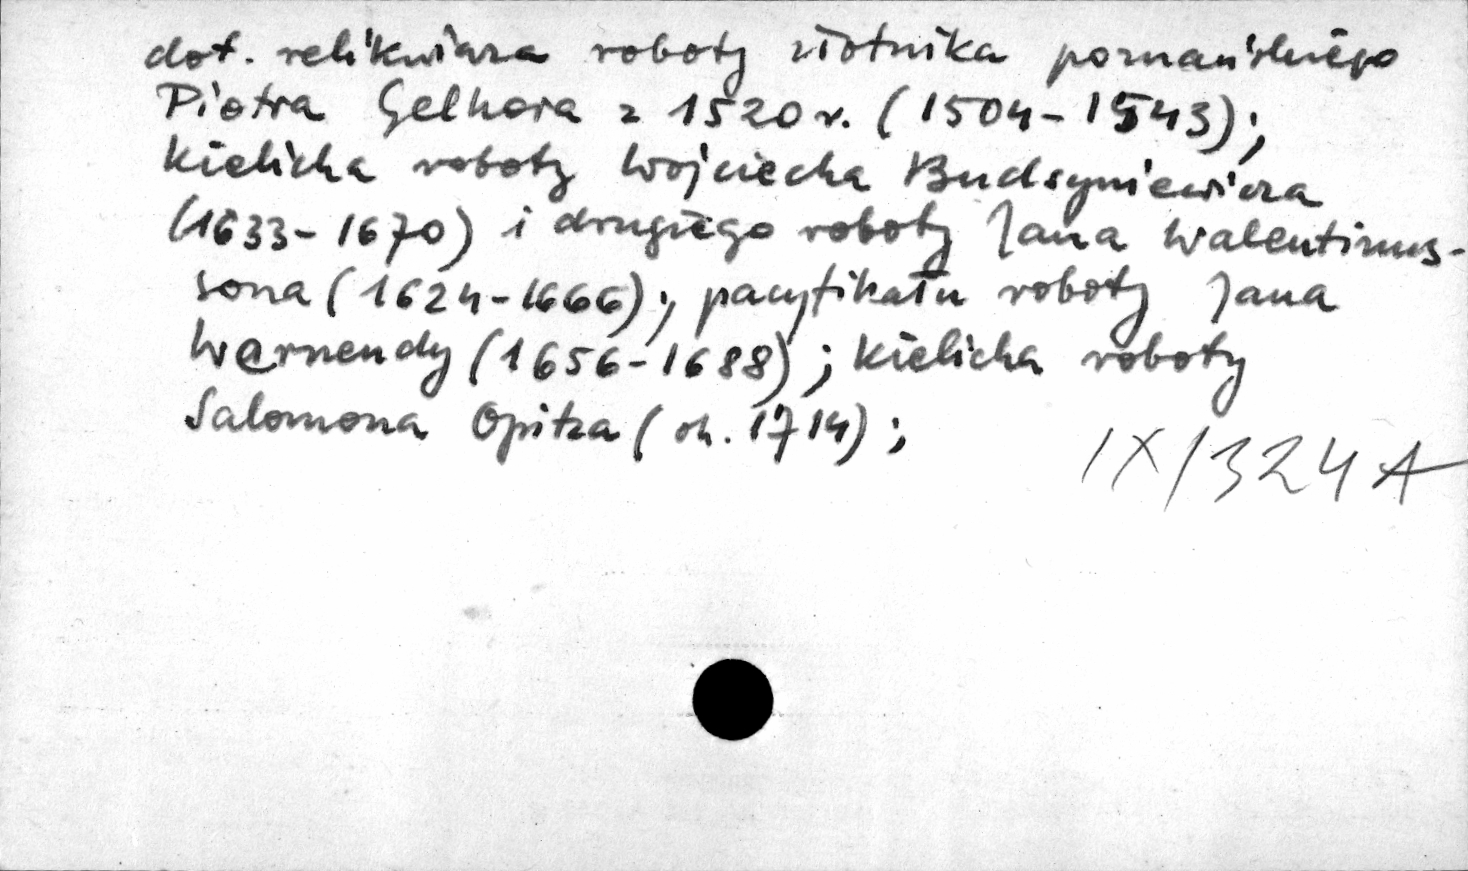 dot. relikwiarza roboty złotnika poznańskiego
Piotra Gelhora z 1520 r. (1504-1543);
kielicha roboty Wojciecha Budzyniewicza
(1633-1670) i drugiego roboty Jana Walentinus-
sona (1624-1666); pacyfikału roboty Jana
Warnendy (1656-1688); kielicha roboty
Salomona Opitza (ok. 1714);
IX/324 A